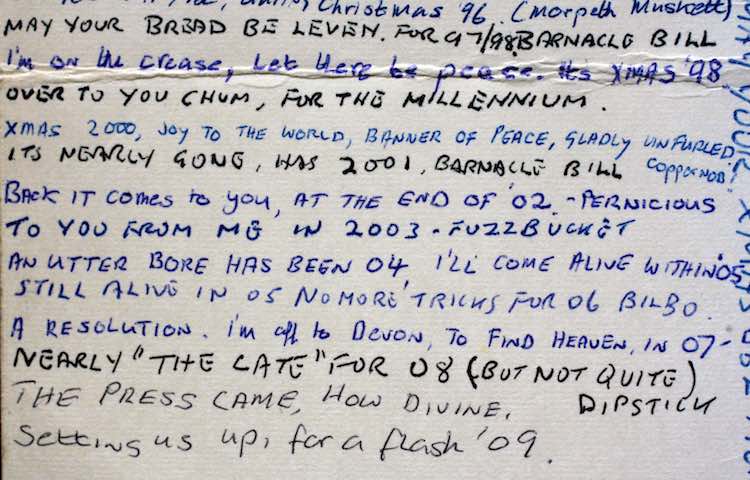 during Christmas '96. (Morpeth Muskett)
MAY YOUR BREAD BE LEVEN. FOR 97/98 BARNACLE BILL
I'm on the crease, Let there be peace. Its XMAS '98
OVER TO YOU CHUM, FOR THE MILLENNIUM.
XMAS 2000, JOY TO THE WORLD, BANNER OF PEACE, GLADLY UNFURLED.
COPPERNOB!
ITS NEARLY GONE, HAS 2001, BARNACLE BILL
BACK IT COMES TO YOU, AT THE END OF '02 - PERNICIOUS
TO YOU FROM ME IN 2003 - FUZZBUCKET
AN UTTER BORE HAS BEEN 04 I'LL COME ALIVE WITHIN '05
STILL ALIVE IN 05 NO MORE TRICKS FOR 06 BILBO.
A RESOLUTION. I'm off to DEVON, TO FIND HEAVEN, IN 07-
NEARLY "THE LATE" FOR 08 (BUT NOT QUITE)
DIPSTICK
THE PRESS CAME, HOW DIVINE,
Setting us up, for a flash '09.